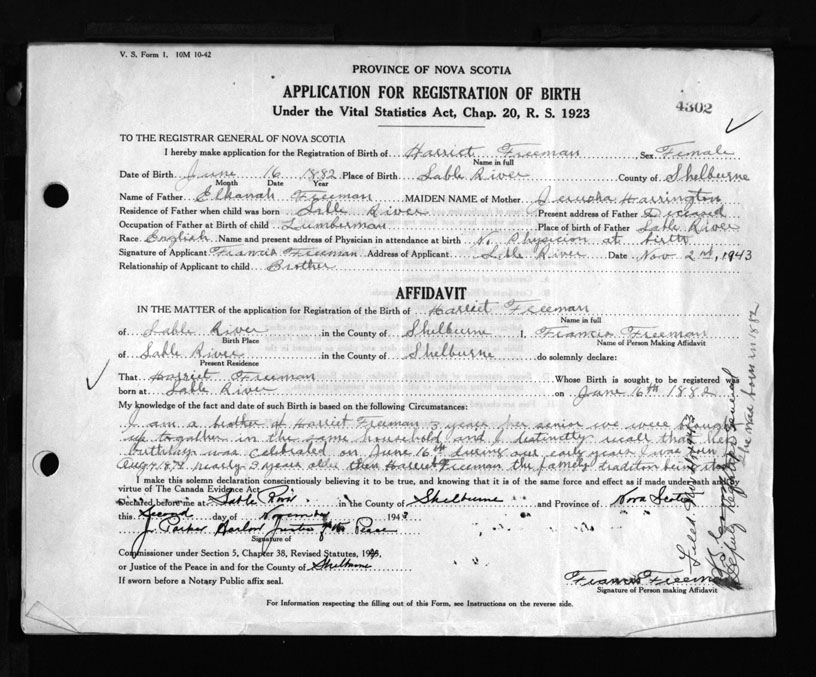 V. S. Form 1. 10M 10-42
PROVINCE OF NOVA SCOTIA
APPLICATION FOR REGISTRATION OF BIRTH
4302
Under the Vital Statistics Act, Chap. 20, R. S. 1923
TO THE REGISTRAR GENERAL OF NOVA SCOTIA
I hereby make application for the Registration of Birth of Harriet Freeman Sex Female
Name in full
Date of Birth June 16 1882 Place of Birth Sable River County of Shelburne
Month Date Year
Name of Father Elkanah Freeman MAIDEN NAME of Mother Jerusha Harrington
Residence of Father when child was born Sable River Present address of Father Deceased
Occupation of Father at Birth of child Lumberman Place of birth of Father Sable River
Race English Name and present address of Physician in attendance at birth No Physician at birth
Signature of Applicant Francis Freeman Address of Applicant Sable River Date Nov 2nd, 1943
Relationship of Applicant to child Brother
AFFIDAVIT
IN THE MATTER of the application for Registration of the Birth of Harriet Freeman
Name in full
of Sable River in the County of Shelburne I, Francis Freeman
Birth Place Name of Person Making Affidavit
of Sable River in the County of Shelburne do solemnly declare:
Present Residence
That Harriet Freeman Whose Birth is sought to be registered was
born at Sable River on June 16th 1882
My knowledge of the fact and date of such Birth is based on the following Circumstances:
I am a brother of Harriet Freeman 3 years her senior we were brought
up together in the same household and I distinctly recall that her
birthday was celebrated on June 16th during our early years I was born in
Aug nearly 3 years older than Harriet Freeman the family tradition being
she was born in 1882
I make this solemn declaration conscientiously believing it to be true, and knowing that it is of the same force and effect as if made under oath and by
virtue of The Canada Evidence Act.
Declared before me at Sable River in the County of Shelburne and Province of Nova Scotia
this Second day of November 1943
J. Parker Harlow Justice of the Peace
Signature of
Commissioner under Section 5, Chapter 38, Revised Statutes,
or Justice of the Peace in and for the County of Shelburne
If sworn before a Notary Public affix seal.
Francis Freeman
Signature of Person making Affidavit
For Information respecting the filling out of this Form, see Instructions on the reverse side.
Filed Nov 1943
Deputy Registrar General